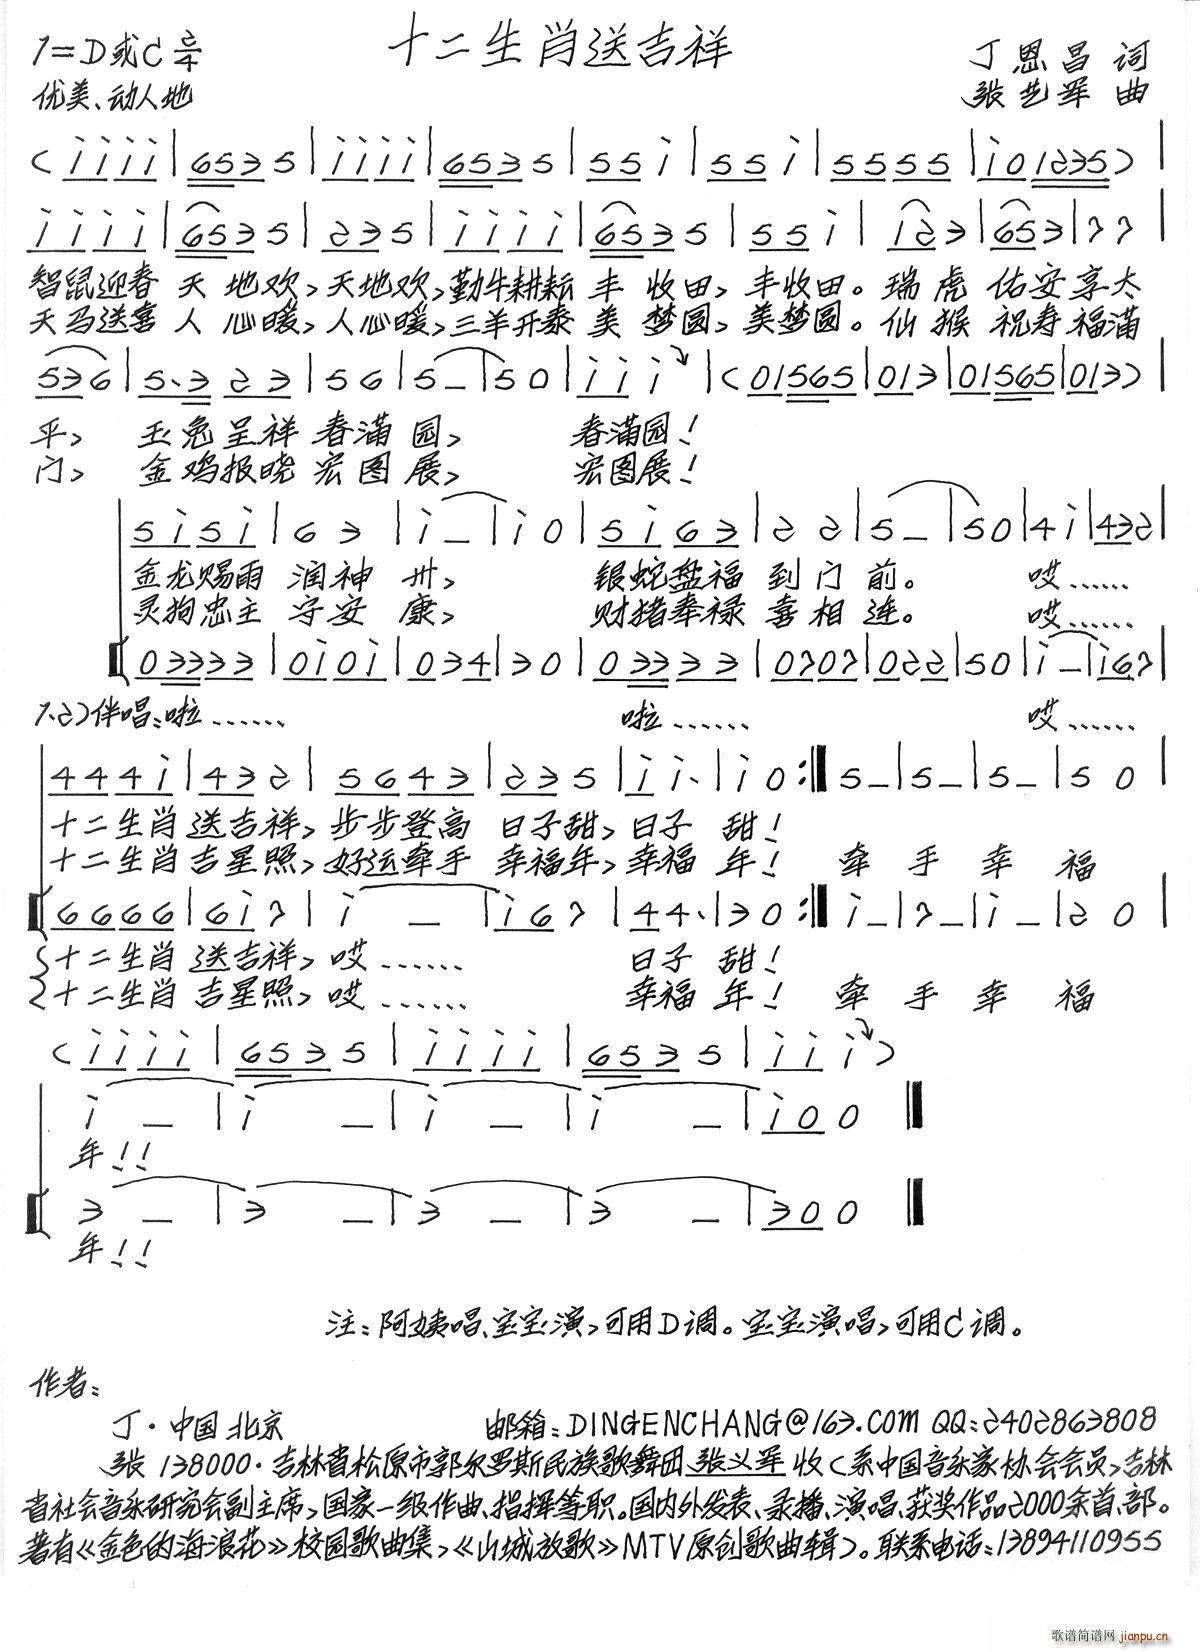 十二生肖送吉祥
1=D或C 2/4
丁恩昌 词
优美、动人地
张艺军 曲
( i i i i | 6 5 3 5 | i i i i | 6 5 3 5 | 5 5 i | 5 5 i | 5 5 5 5 | i 0 1 2 3 5 ) |
i i i i | 6 5 3 5 | 2 3 5 | i i i i | 6 5 3 5 | 5 5 i | i 2 3 | 6 5 3 | 7 7 |
智鼠迎春 天 地欢, 天地欢, 勤牛耕耘 丰 收田, 丰收田。 瑞 虎 佑安享太
天马送喜 人 心暖, 人心暖, 三羊开泰 美 梦圆, 美梦圆。 仙 猴 祝寿福满
5 3 6 | 5 · 3 2 3 | 5 6 | 5 – | 5 0 | i i i | ( 0 1 5 6 5 | 0 1 3 | 0 1 5 6 5 | 0 1 3 ) |
平, 玉兔呈祥 春满 园, 春满园!
门, 金鸡报晓 宏图 展, 宏图展!
5 i 5 i | 6 3 | i – | i 0 | 5 i 6 3 | 2 2 | 5 – | 5 0 | 4 i | 4 3 2 |
金龙赐雨 润神 州, 银蛇盘福 到 门 前。 哎……
灵狗忠主 守安 康, 财猪奉禄 喜 相 连。 哎……
0 3 3 3 3 | 0 i 0 i | 0 3 4 | 3 0 | 0 3 3 3 3 | 0 7 0 7 | 0 2 2 | 5 0 | i – | i 6 7 |
1.2)伴唱:啦…… 啦…… 哎……
4 4 4 i | 4 3 2 | 5 6 4 3 | 2 3 5 | i i · | i 0 :‖ 5 – | 5 – | 5 – | 5 0 |
十二生肖 送吉祥, 步步登高 日子甜, 日子 甜!
十二生肖 吉星照, 好运牵手 幸福年, 幸福 年! 牵 手 幸 福
6 6 6 6 | 6 i 7 | i – | i 6 7 | 4 4 · | 3 0 :‖ i – | 7 – | i – | 2 0 |
十二生肖 送吉祥, 哎…… 日子 甜!
十二生肖 吉星照, 哎…… 幸福 年! 牵 手 幸 福
( i i i i | 6 5 3 5 | i i i i | 6 5 3 5 | i i i )
i – | i – | i – | i – | i 0 0 ‖
年!!
3 – | 3 – | 3 – | 3 – | 3 0 0 ‖
年!!
注:阿姨唱、宝宝演,可用D调。宝宝演唱,可用C调。
作者:
丁·中国 北京 邮箱:DINGENCHANG@163.COM QQ:2402863808
张 138000·吉林省松原市郭尔罗斯民族歌舞团 张义军 收(系中国音乐家协会会员,吉林
省社会音乐研究会副主席,国家一级作曲、指挥等职。国内外发表、录播、演唱、获奖作品2000余首、部。
著有《金色的海浪花》校园歌曲集,《山城放歌》MTV原创歌曲辑)。联系电话:13894110955
歌谱简谱网
jianpu.cn